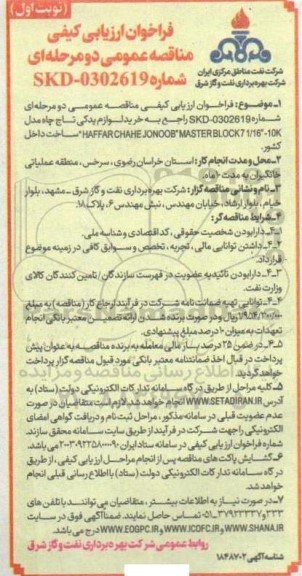 (نوبت اول)
فراخوان ارزیابی کیفی
مناقصه عمومی دو مرحله‌ای
شماره SKD-0302619
شرکت نفت مناطق مرکزی ایران
شرکت بهره برداری نفت و گاز شرق
۱-موضوع: فراخوان ارزیابی کیفی مناقصه عمومی دو مرحله‌ای
شماره SKD-0302619 راجع به خرید لوازم یدکی تاج چاه مدل
"HAFFAR CHAHE JONOOB" MASTER BLOCK 7 1/16"-10K ساخت داخل
کشور.
۲-محل و مدت انجام کار: استان خراسان رضوی، سرخس، منطقه عملیاتی
خانگیران به مدت ۱۰ ماه.
۳-نام و نشانی مناقصه گزار: شرکت بهره برداری نفت و گاز شرق-مشهد، بلوار
خیام، بلوار ارشاد، خیابان مهندس، نبش مهندس ۶، پلاک ۱۸.
۴-شرایط مناقصه گر:
۴-۱-دارا بودن شخصیت حقوقی، کد اقتصادی و شناسه ملی.
۴-۲-داشتن توانایی مالی، تجربه، تخصص و سوابق کافی در زمینه موضوع
قرارداد.
۴-۳-دارا بودن تائیدیه عضویت در فهرست سازندگان / تامین کنندگان کالای
وزارت نفت.
۴-۴-توانایی تهیه ضمانت نامه شرکت در فرآیند ارجاع کار (مناقصه) به مبلغ
ریال و در صورت برنده شدن ارائه تضمین معتبر بانکی انجام
تعهدات به میزان ۱۰ درصد مبلغ پیشنهادی.
۴-۵-در ضمن ۲۵ درصد ریالی معامله به برنده مناقصه به عنوان پیش
پرداخت در قبال اخذ ضمانتنامه معتبر بانکی مورد قبول مناقصه گزار پرداخت
خواهد گردید.
۵-کلیه مراحل از طریق درگاه سامانه تدارکات الکترونیکی دولت (ستاد) به
آدرس WWW.SETADIRAN.IR انجام خواهد شد. لازم است متقاضیان در صورت
عدم عضویت قبلی در سامانه مذکور، مراحل ثبت نام و دریافت گواهی امضای
الکترونیکی را جهت شرکت در فرآیند از طریق سایت سامانه محقق سازند.
شماره فراخوان ارزیابی کیفی در سامانه ستاد ایران می باشد.
۶-گشایش پاکت های مناقصه پس از انجام مراحل ارزیابی کیفی، از طریق
درگاه سامانه تدارکات الکترونیکی دولت (ستاد) با اطلاع رسانی قبلی انجام
خواهد شد.
۷-در صورت نیاز به اطلاعات بیشتر، متقاضیان می توانند با تلفن های
تماس حاصل نمایند. ضمنا آگهی فوق در سایت
WWW.SHANA.IR و WWW.ICOFC.IR و WWW.EOGPC.IR درج می باشد.
روابط عمومی شرکت بهره برداری نفت و گاز شرق
شناسه آگهی ۱۸۴۸۷۰۲